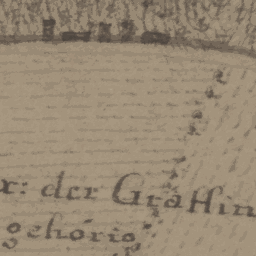 x: der Gräffin
gehörig